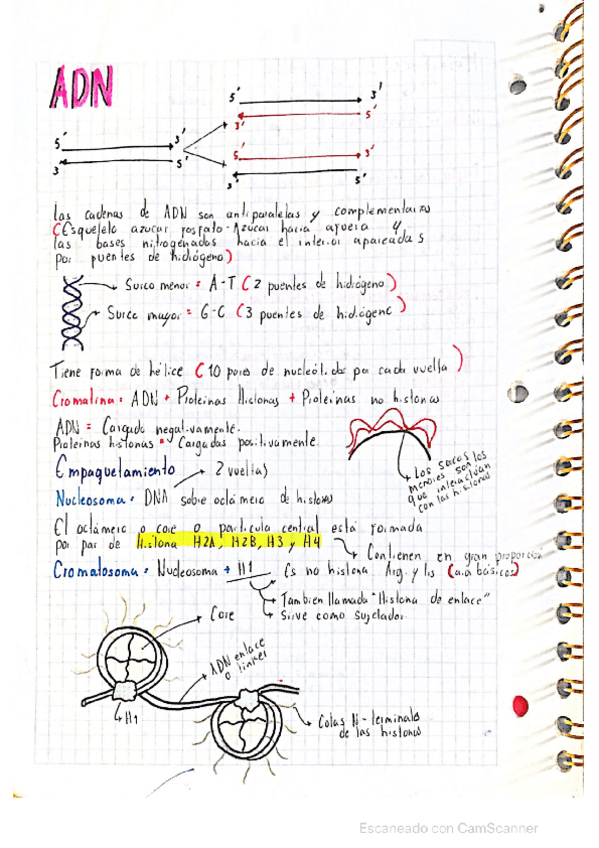 ADN
5' 3'
3' 5'
5' 3'
3' 5'
5' 3'
3' 5'
Las cadenas de ADN son antiparalelas y complementarias
(Esqueleto azucar fosfato-Azucar hacia afuera y
las bases nitrogenadas hacia el interior apareadas
por puentes de hidrógeno)
Surco menor = A-T (2 puentes de hidrógeno)
Surco mayor = G-C (3 puentes de hidrógeno)
Tiene forma de hélice (10 pares de nucleótidos por cada vuelta)
Cromatina: ADN + Proteinas Histonas + Proteinas no histonas
ADN = Cargado negativamente.
Proteinas histonas = Cargadas positivamente.
Los surcos
menores son los
que interactúan
con las histonas
Empaquetamiento 2 vueltas
Nucleosoma: DNA sobre octámero de histonas
El octámero o core o particula central está formada
por par de Histona H2A, H2B, H3 y H4
Contienen en gran proporción
Cromatosoma: Nucleosoma + H1 Es no histona Arg. y lis (a.a básicos)
También llamada "Histona de enlace"
Sirve como sujetador
Core
ADN enlace
o linker
H1
Colas N-terminales
de las histonas
Escaneado con CamScanner